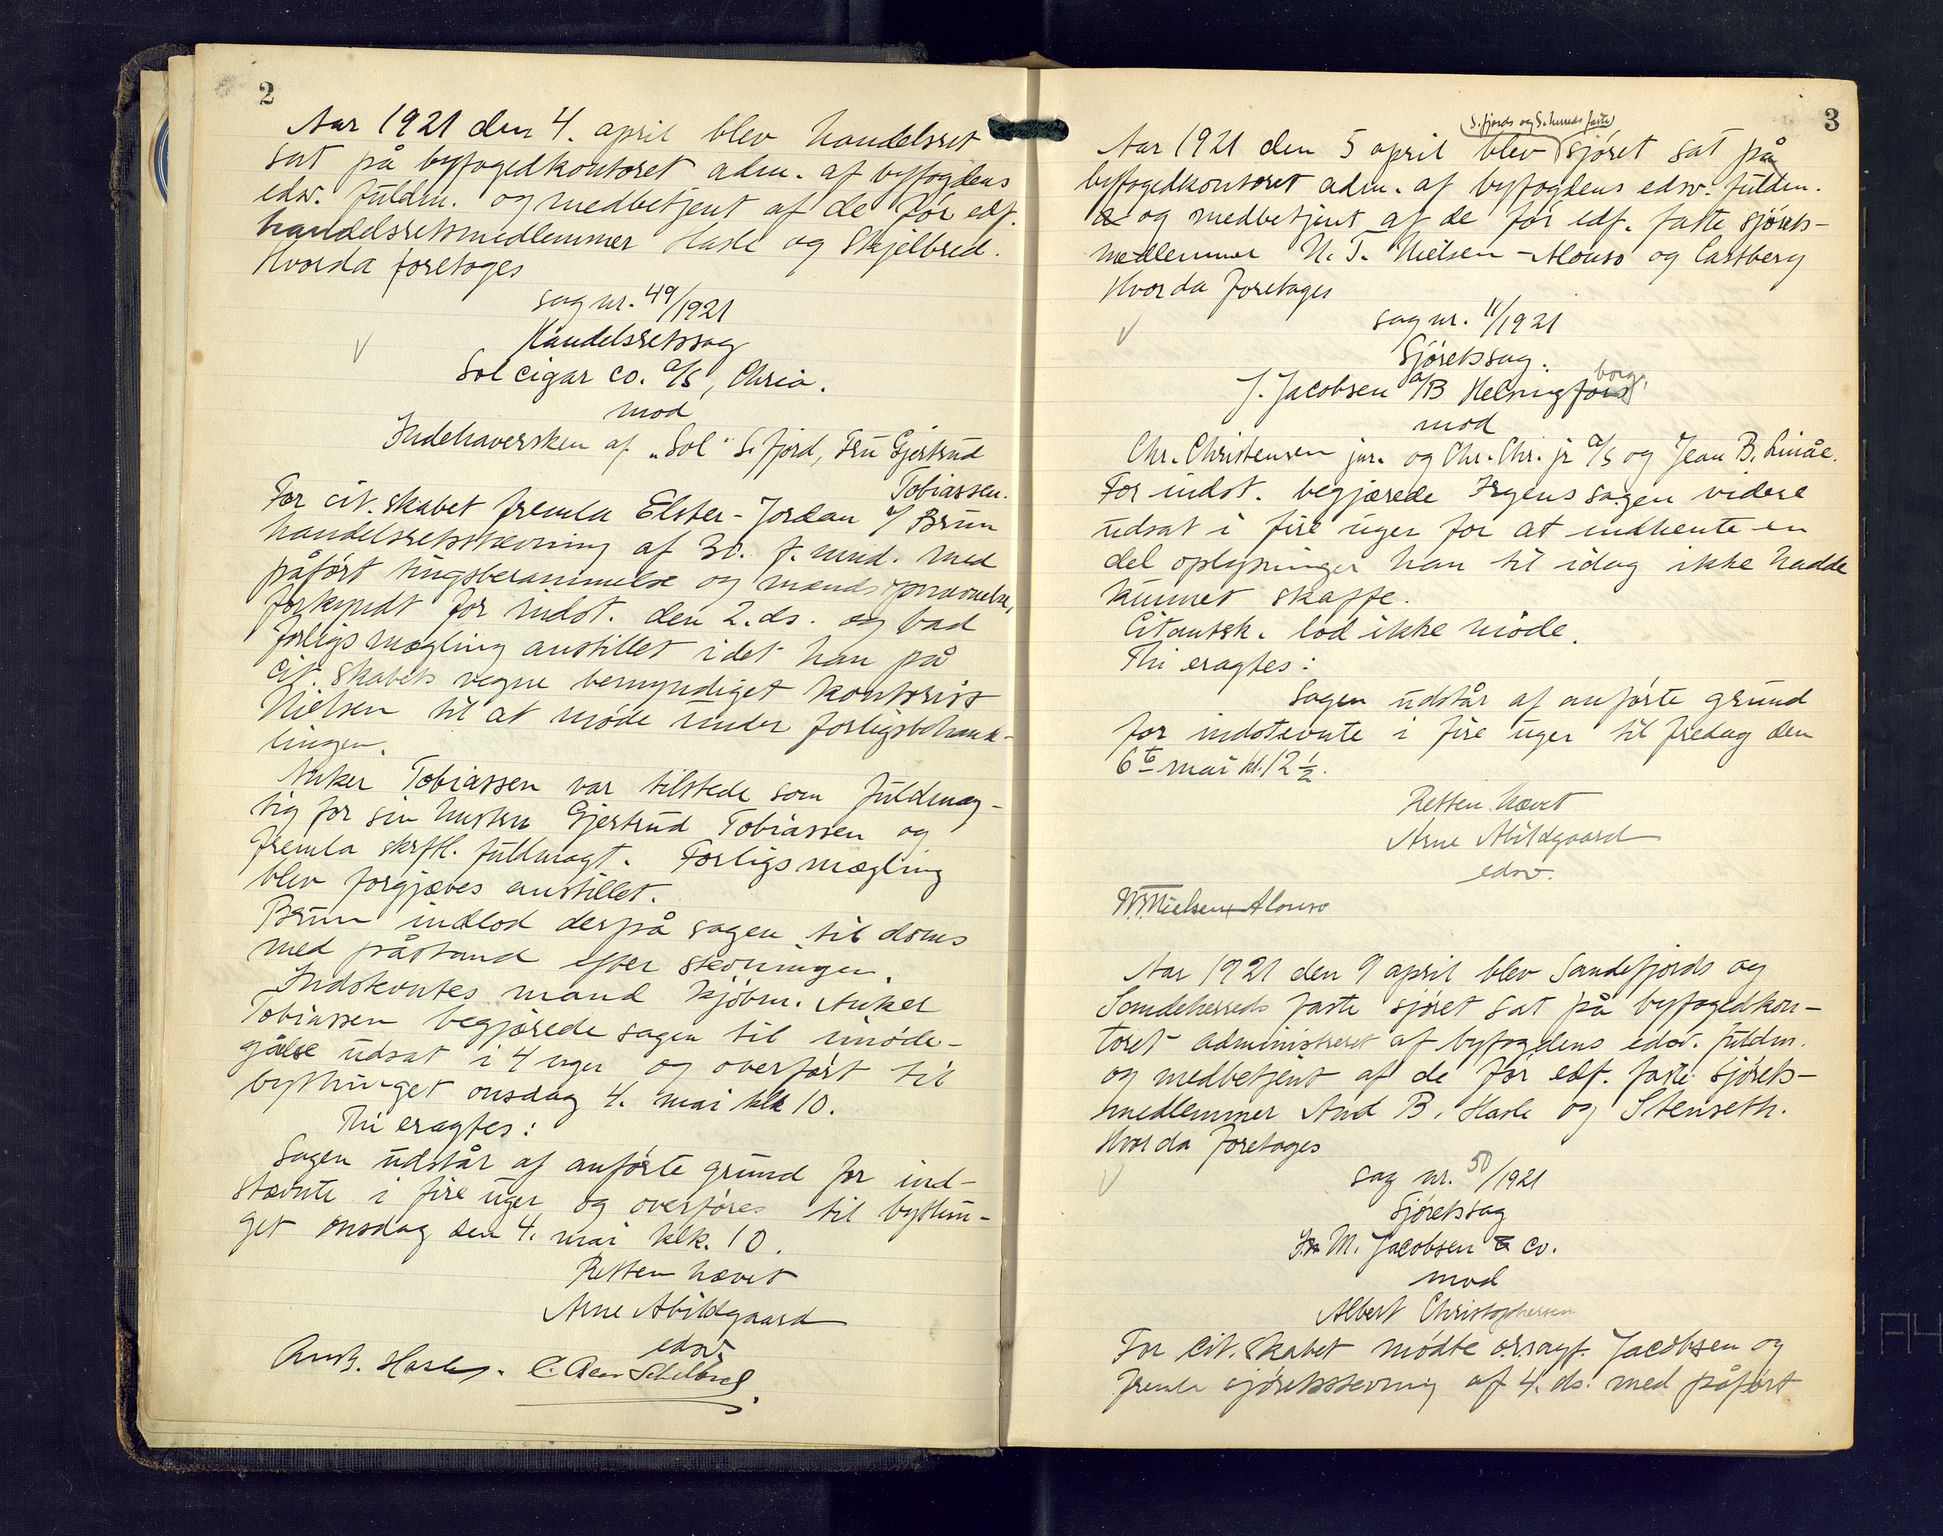 2
Aar 1921 den 4. april blev handelsret
sat på byfogedkontoret adm. af byfogdens
edsv. fuldm. og medbetjent af de før edf.
handelsretsmedlemmer Hasle og Skjelbred.
Hvorda foretoges
sag nr. 49/1921
Handelsretssag
Sol cigar co. a/s, Chria.
mod
Indehaversken af "Sol" S.fjord, Fru Gjertrud
Tobiassen.
For cit.skabet fremla Elster-Jordan v/ Brun
handelsretsstævning af 30. f. mnd. med
påført tingsberammelse og mandsopnævnelse,
forkyndt for indst. den 2. ds. og bad
forligsmægling anstillet idet han på
cit.skabets vegne bemyndiget kontorist
Nielsen til at møde under forligsbehand-
lingen.
Anker Tobiassen var tilstede som fuldmæg-
tig for sin hustru Gjertrud Tobiassen og
fremla skrftl. fuldmagt. Forligsmægling
blev forgjæves anstillet.
Brun indlod derpå sagen til doms
med påstand efter stevningen.
Indstevntes mand kjøbm. Anker
Tobiassen begjærede sagen til imøde-
gåelse udsat i 4 uger og overført til
bythinget onsdag 4. mai klk 10.
Thi eragtes:
Sagen udstår af anførte grund for ind-
stævnte i fire uger og overføres til bythin-
get onsdag den 4. mai klk. 10.
Retten hævet
Arne Abildgaard
edsv.
And. B. Hasle. C. Skjelbred.
3
S.fjords og S.herreds faste
Aar 1921 den 5 april blev sjøret sat på
byfogedkontoret adm. af byfogdens edsv. fuldm.
og medbetjent af de før edf. faste sjørets-
medlemmer N. T. Nielsen-Alonso og Castberg
Hvorda foretoges
sag nr. 11/1921
Sjøretssag.
borg.
J. Jacobsen a/B Helsingfors
mod
Chr. Christensen jun. og Chr. Chr. jr a/s og Jean B. Linåe.
For indst. begjærede Irgens sagen videre
udsat i fire uger for at indhente en
del oplysninger han til idag ikke hadde
kunnet skaffe.
Citantsk. lod ikke møde.
Thi eragtes:
Sagen udstår af anførte grund
for indstevnte i fire uger til fredag den
6te mai kl. 12 1/2.
Retten hævet
Arne Abildgaard
edsv.
N. T. Nielsen-Alonso
Aar 1921 den 9 april blev Sandefjords og
Sandeherreds faste sjøret sat på byfogedkon-
toret administreret af byfogdens edsv. fuldm.
og medbetjent af de før edf. faste sjørets-
medlemmer And B. Hasle og Stenseth.
Hvorda foretoges
sag nr. 50/1921
Sjøretssag
M. Jacobsen & co.
mod
Albert Christophersen
For cit.skabet mødte orsagf. Jacobsen og
fremla sjøretsstevning af 4. ds. med påført